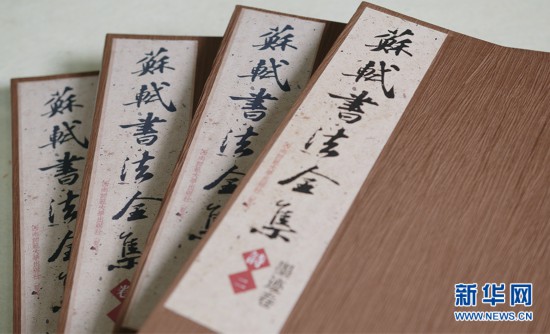 蘇軾書法全集
蘇軾書法全集
蘇軾書法全集
卷
蘇軾書法全集
墨迹卷
二
新华网
WWW.NEWS.CN